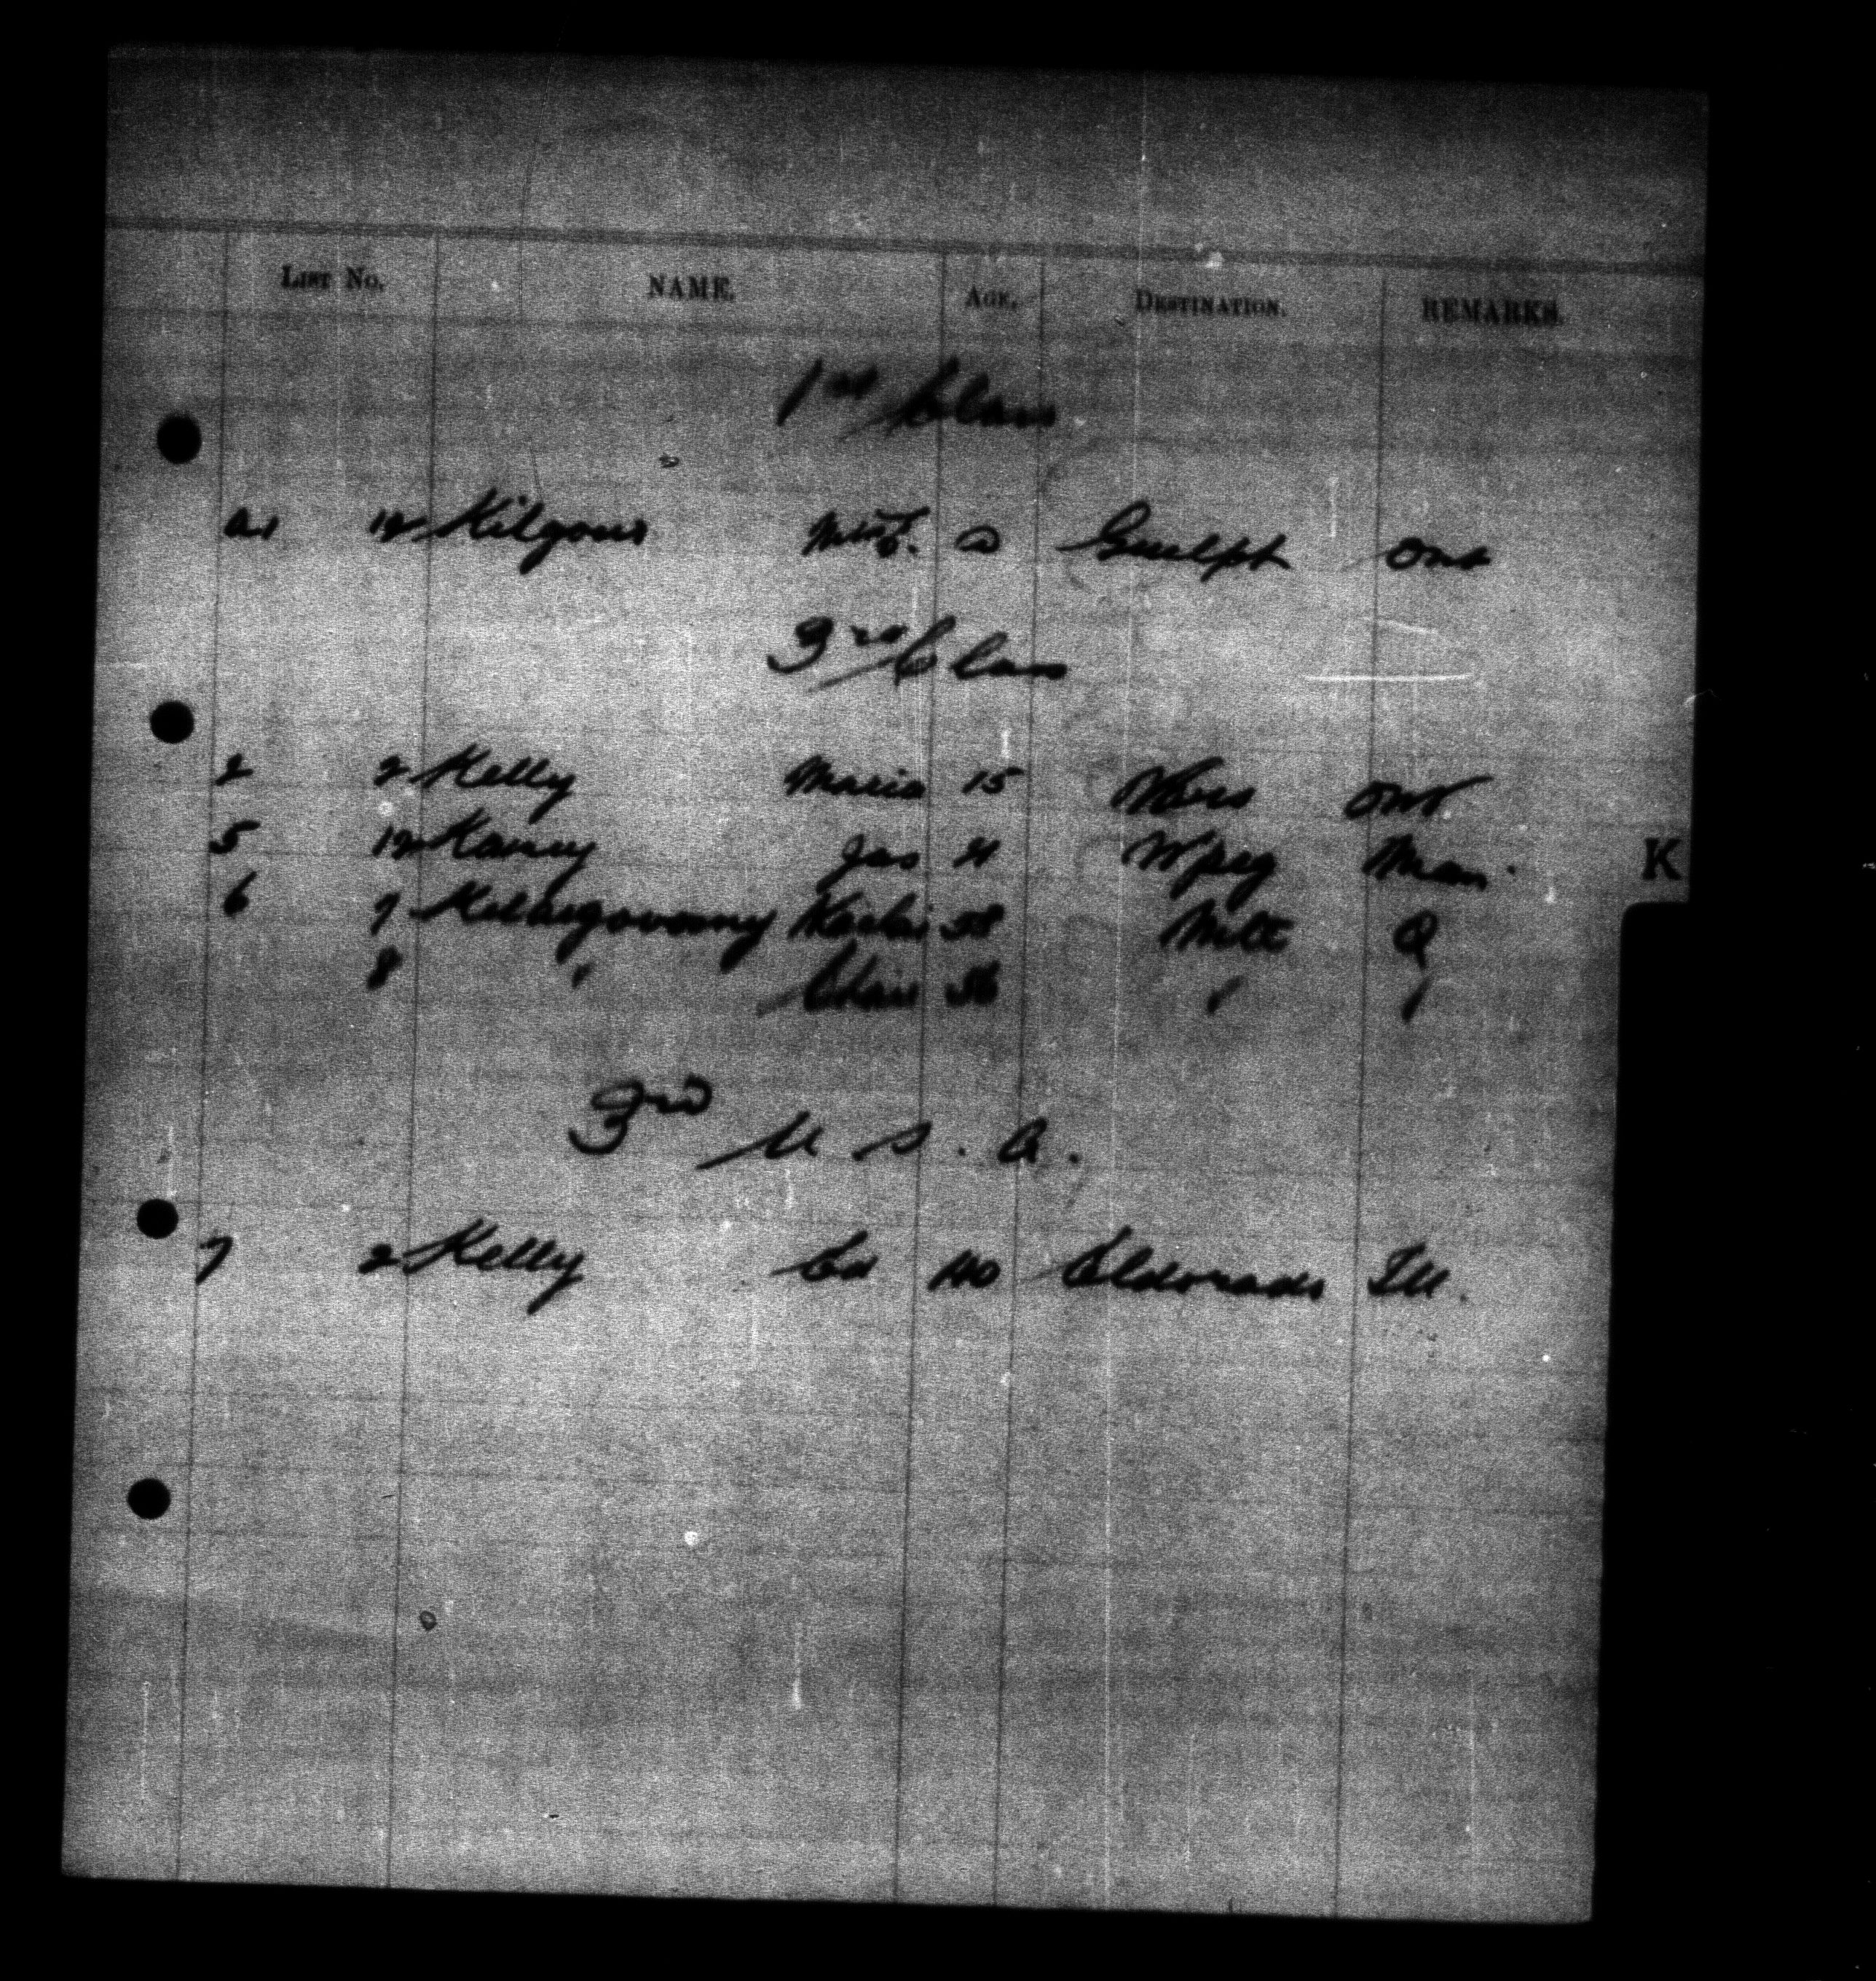 LIST No. NAME. AGE. DESTINATION. REMARKS.
1st Class
a1 12 Kilgour Miss a Guelph Ont
3rd Class
2 2 Kelly Maria 15 Ont
5 12 Jas 21 Wpeg Man.
K
6 7 58 Mtl Q
8 " 56 " "
3rd U S. A.
7 2 Kelly Ed 40 Eldorado Ill.